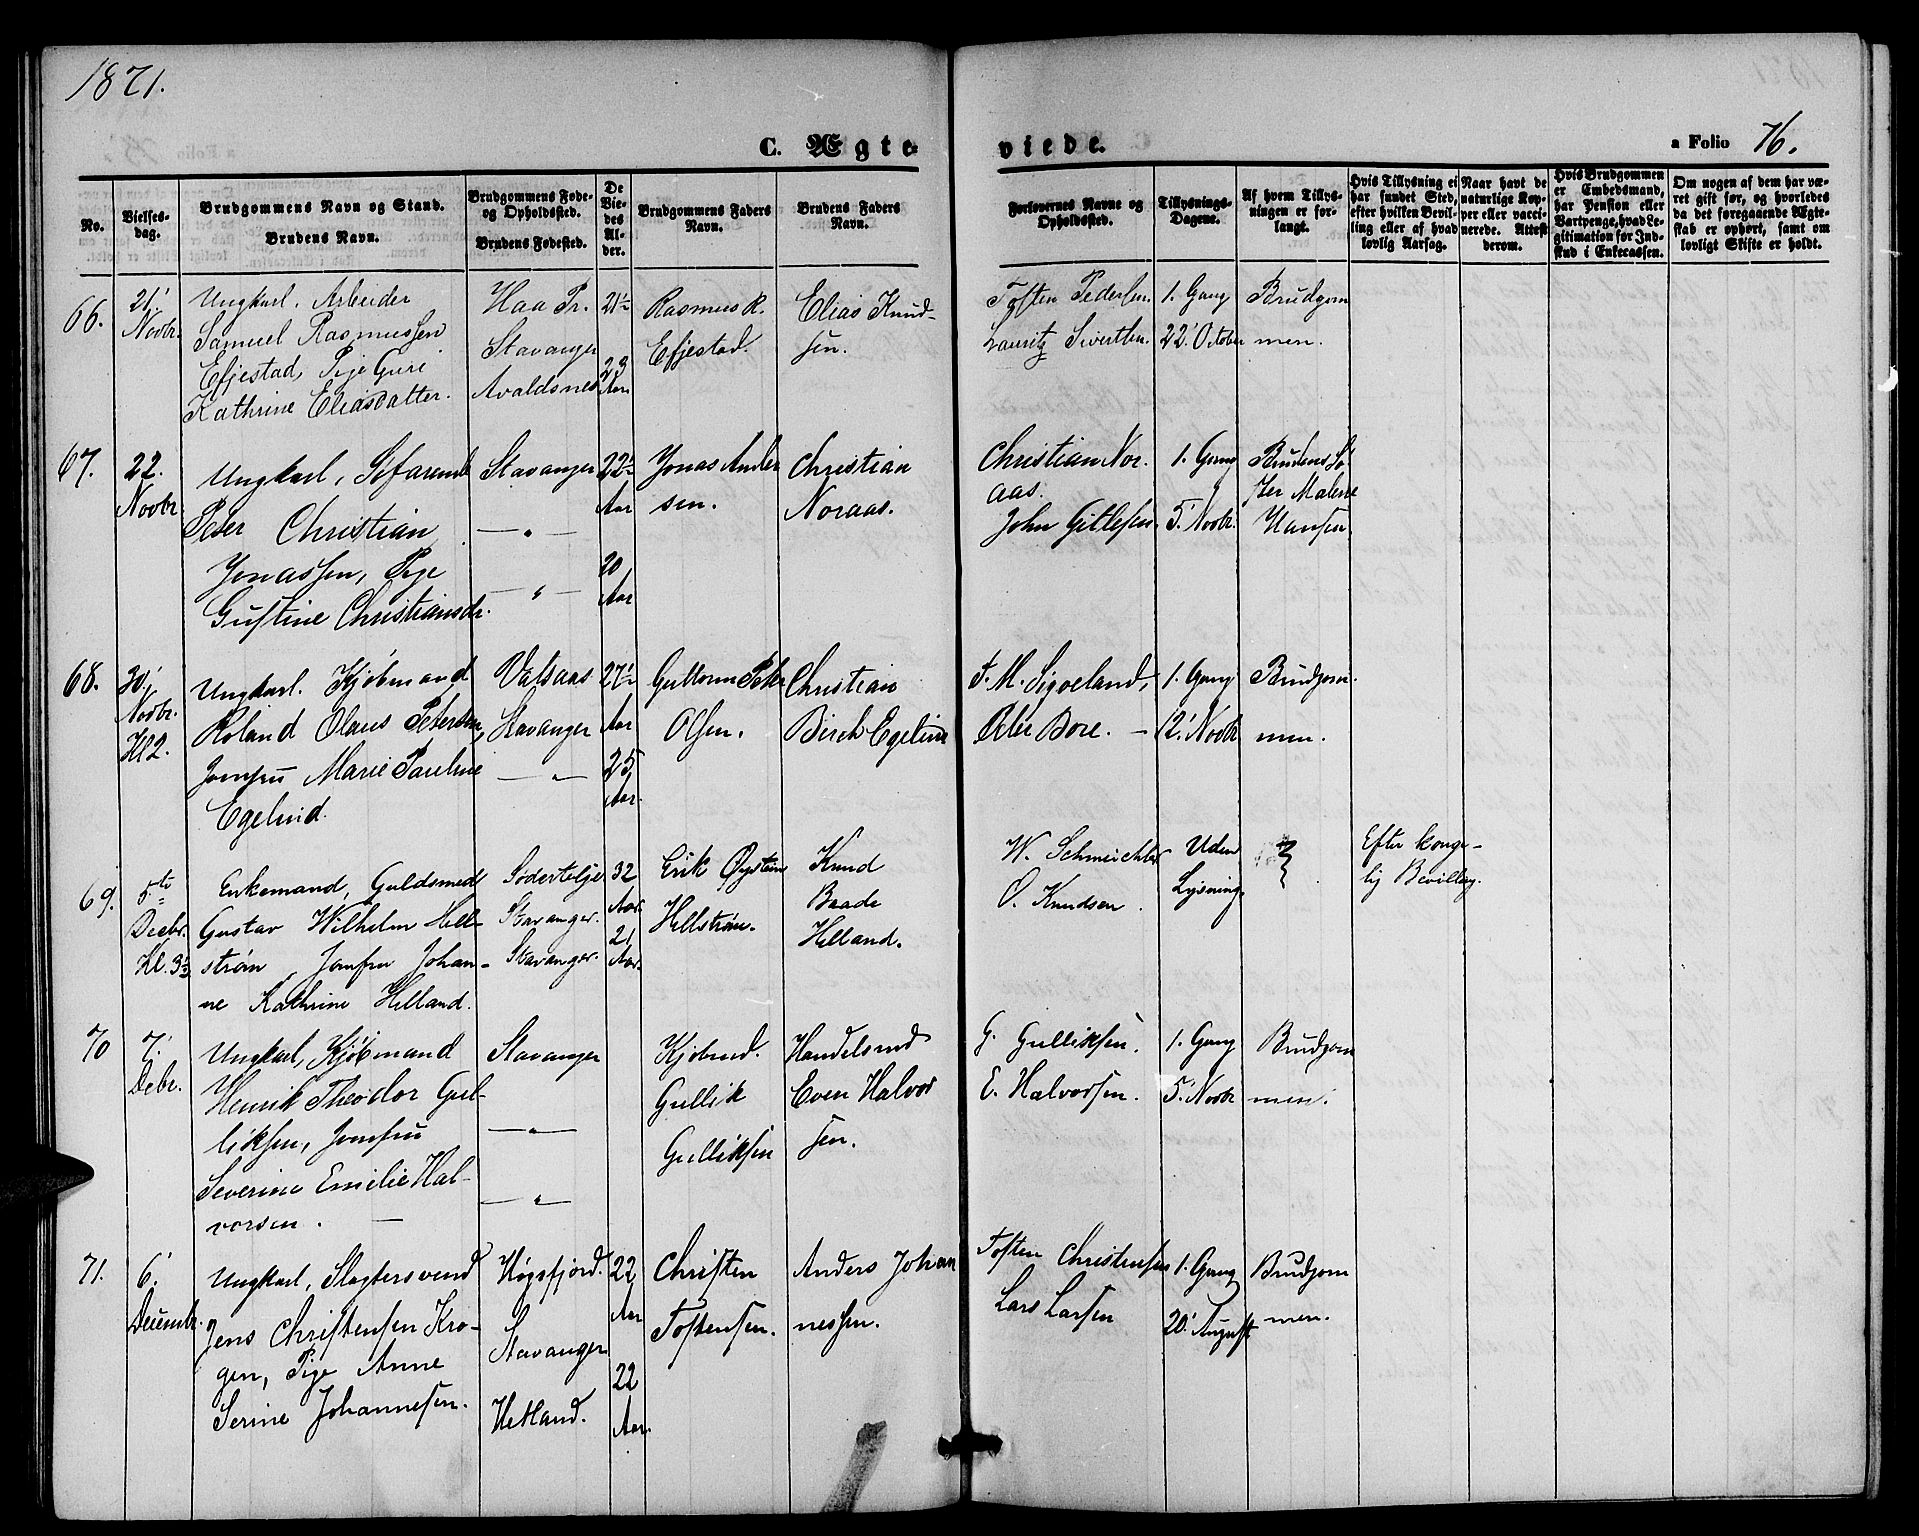 1871.
C. Ægte-
viede.
a Folio 76.
No.
Vielses-
dag.
Brudgommens Navn og Stand.
Brudens Navn.
Brudgommens Føde-
og Opholdssted.
Brudens Fødested.
De
Vie-
des
Al-
der.
Brudgommens Faders
Navn.
Brudens Faders
Navn.
Forlovernes Navne og
Opholdssted.
Tillysnings-
Dagene.
Af hvem Tillys-
ningen er for-
langt.
Hvis Tillysning ei
har fundet Sted,
efter hvilken Bevil-
ling eller af hvad
lovlig Aarsag.
Naar havt de
naturlige Kop-
per eller vacci-
nerede. Attest
derom.
Hvis Brudgommen
er Embedsmand,
har Pension eller
Vartpenge, hvad Le-
gitimation for Ind-
skud i Enkecassen.
Om nogen af dem har væ-
ret gift før, og hvorledes
da det foregaaende Ægte-
skab er ophørt, samt om
lovligt Skifte er holdt.
66.
21'
Novbr.
Ungkarl. Arbeider
Samuel Rasmussen
Efjestad, Pige Guri
Kathrine Eliasdatter.
Haa Pr.
Stavanger
Avaldsnes
21½
23
Aar
Rasmus R.
Efjestad.
Elias Knud-
sen.
Tosten Pedersen.
Lauritz Sivertsen.
1. Gang
22' October
Brudgom
men.
67.
22.
Novbr.
Ungkarl, Søfarende
Peter Christian
Jonassen, Pige
Gustine Christiansdr.
Stavanger
— " —
— " —
22½
Aar
20
Aar
Jonas Ander
sen.
Christian
Noraas.
Christian Nor.
aas.
John Gitlesen.
1. Gang
5' Novbr.
Brudens Sø-
ster Malene
Hansen.
68.
30'
Novbr.
Kl 2.
Ungkarl. Kjøbmand
Roland Olaus Petersen,
Jomfru Marie Pauline
Egelund.
Valsaas
Stavanger
— " —
27½
Aar
25
Aar.
Guttorm Peter
Olsen.
Christian
Birch Egelund
T. M. Sigveland,
Peter Bore. —
1. Gang
12' Novbr
Brudgom.
men.
69.
5te
Decbr.
Kl. 3½
Enkemand, Guldsmed
Gustav Wilhelm Hell-
strøm, Jomfru Johan-
ne Kathrine Helland.
Södertelje
Stavanger.
Stavanger.
32
Aar.
21
Aar.
Erik Øystein
Hellstrøm.
Knud
Baade
Helland.
W. Schmeichler
O. Knudsen.
Uden
Lysning.
Efter konge-
lig Bevilling.
70
7'
Debr.
Ungkarl, Kjøbmand
Henrik Theodor Gul-
liksen, Jomfru
Severine Emilie Hal-
vorsen. —
Stavanger
— " —
— " —
Kjøbmd.
Gullik
Gulliksen
Handelsmd
Even Halvor
sen.
G. Gulliksen.
E. Halvorsen.
1. Gang
5' Novbr
Brudgom
men.
71.
6'
Decembr.
Ungkarl, Slagtersvend
Jens Christensen Kro-
gen, Pige Anne
Serine Johannesen.
Høgsfjord.
Stavanger
Hetland.
22
Aar
22
Aar.
Christen
Tostensen.
Anders Johan
nessen.
Tosten Christensen
Lars Larsen
1. Gang
20' August
Brudgom
men.